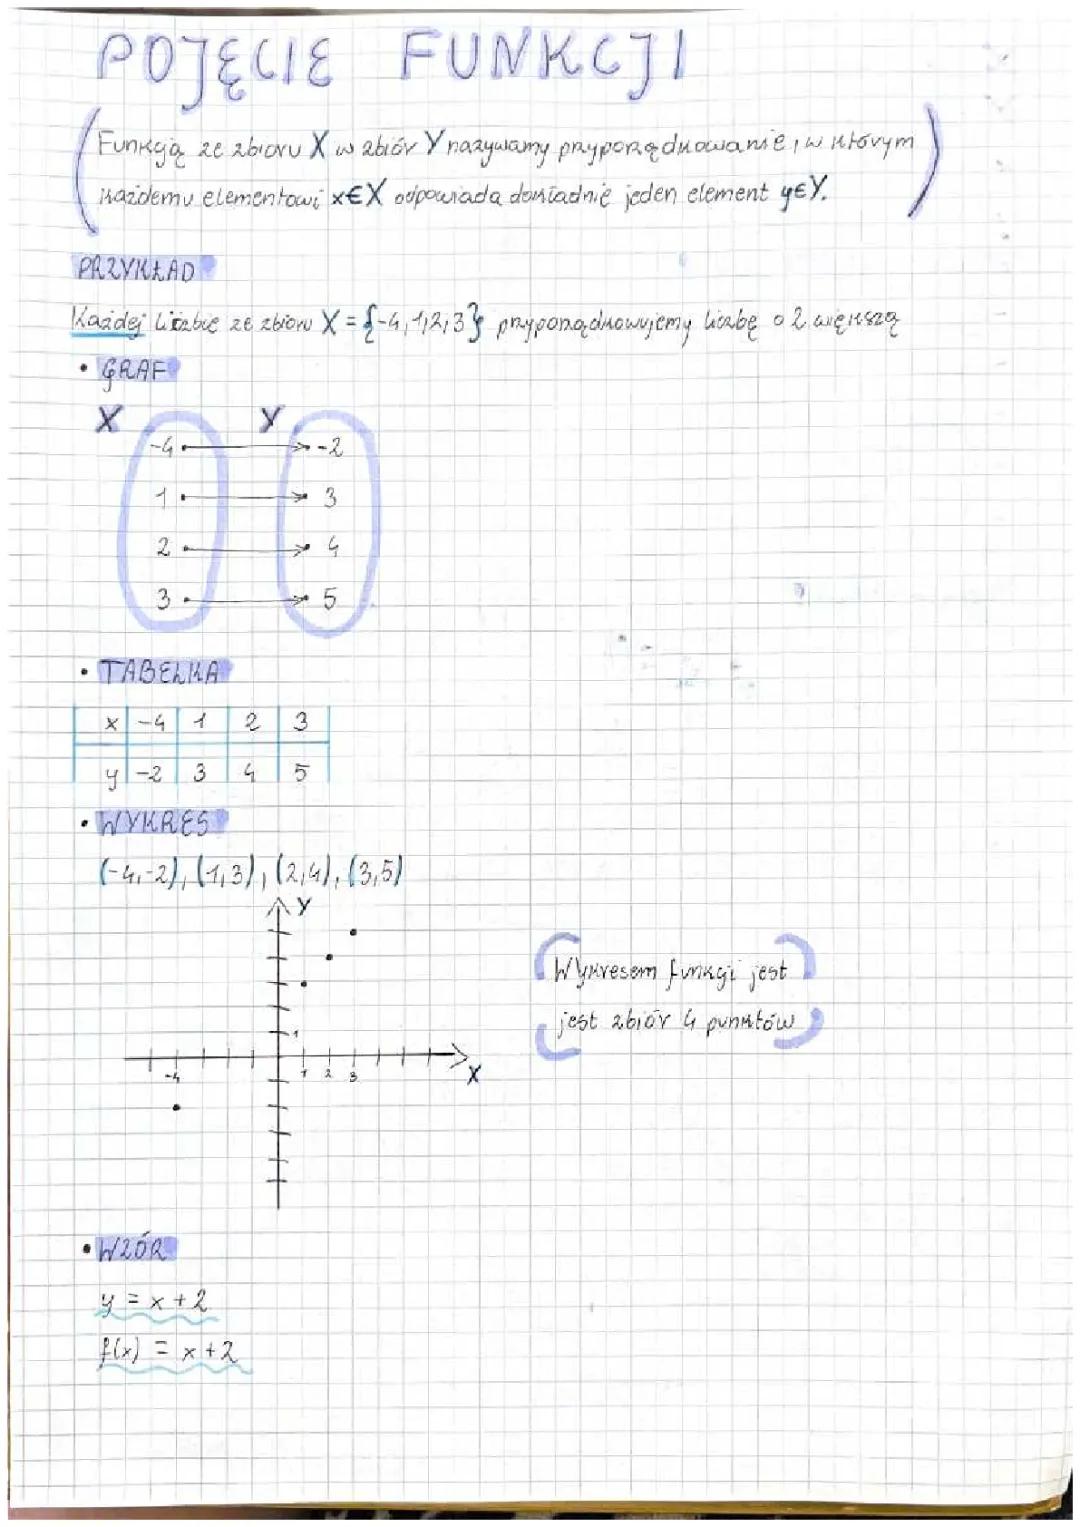 POJĘCIE FUNKCJI
Funkcją ze zbioru X w zbiór Y nazywamy przyporządkowanie, w którym
każdemu elementowi x∈X odpowiada dokładnie jeden element y∈Y.
PRZYKŁAD
Każdej liczbie ze zbioru X = {-4,1,2,3} przyporządkowujemy liczbę o 2 większą
• GRAF
X Y
-4 -2
1 3
2 4
3 5
• TABELKA
x -4 1 2 3
y -2 3 4 5
• WYKRES
(-4,-2), (1,3), (2,4), (3,5)
Y
Wykresem funkcji jest
jest zbiór 4 punktów
1
-4 1 2 3 X
• WZÓR
y = x + 2
f(x) = x + 2